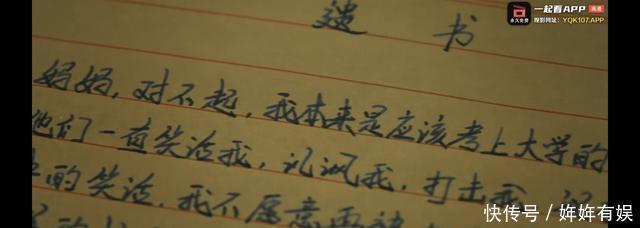 一起看APP 高清
永久免费 观影网址：YQK107.APP
遗 书
妈妈，对不起，我本来是应该考上大学的
他们一直笑话我，讥讽我，打击我
的笑话，我不愿意再
快传号 / 姩姩有娱